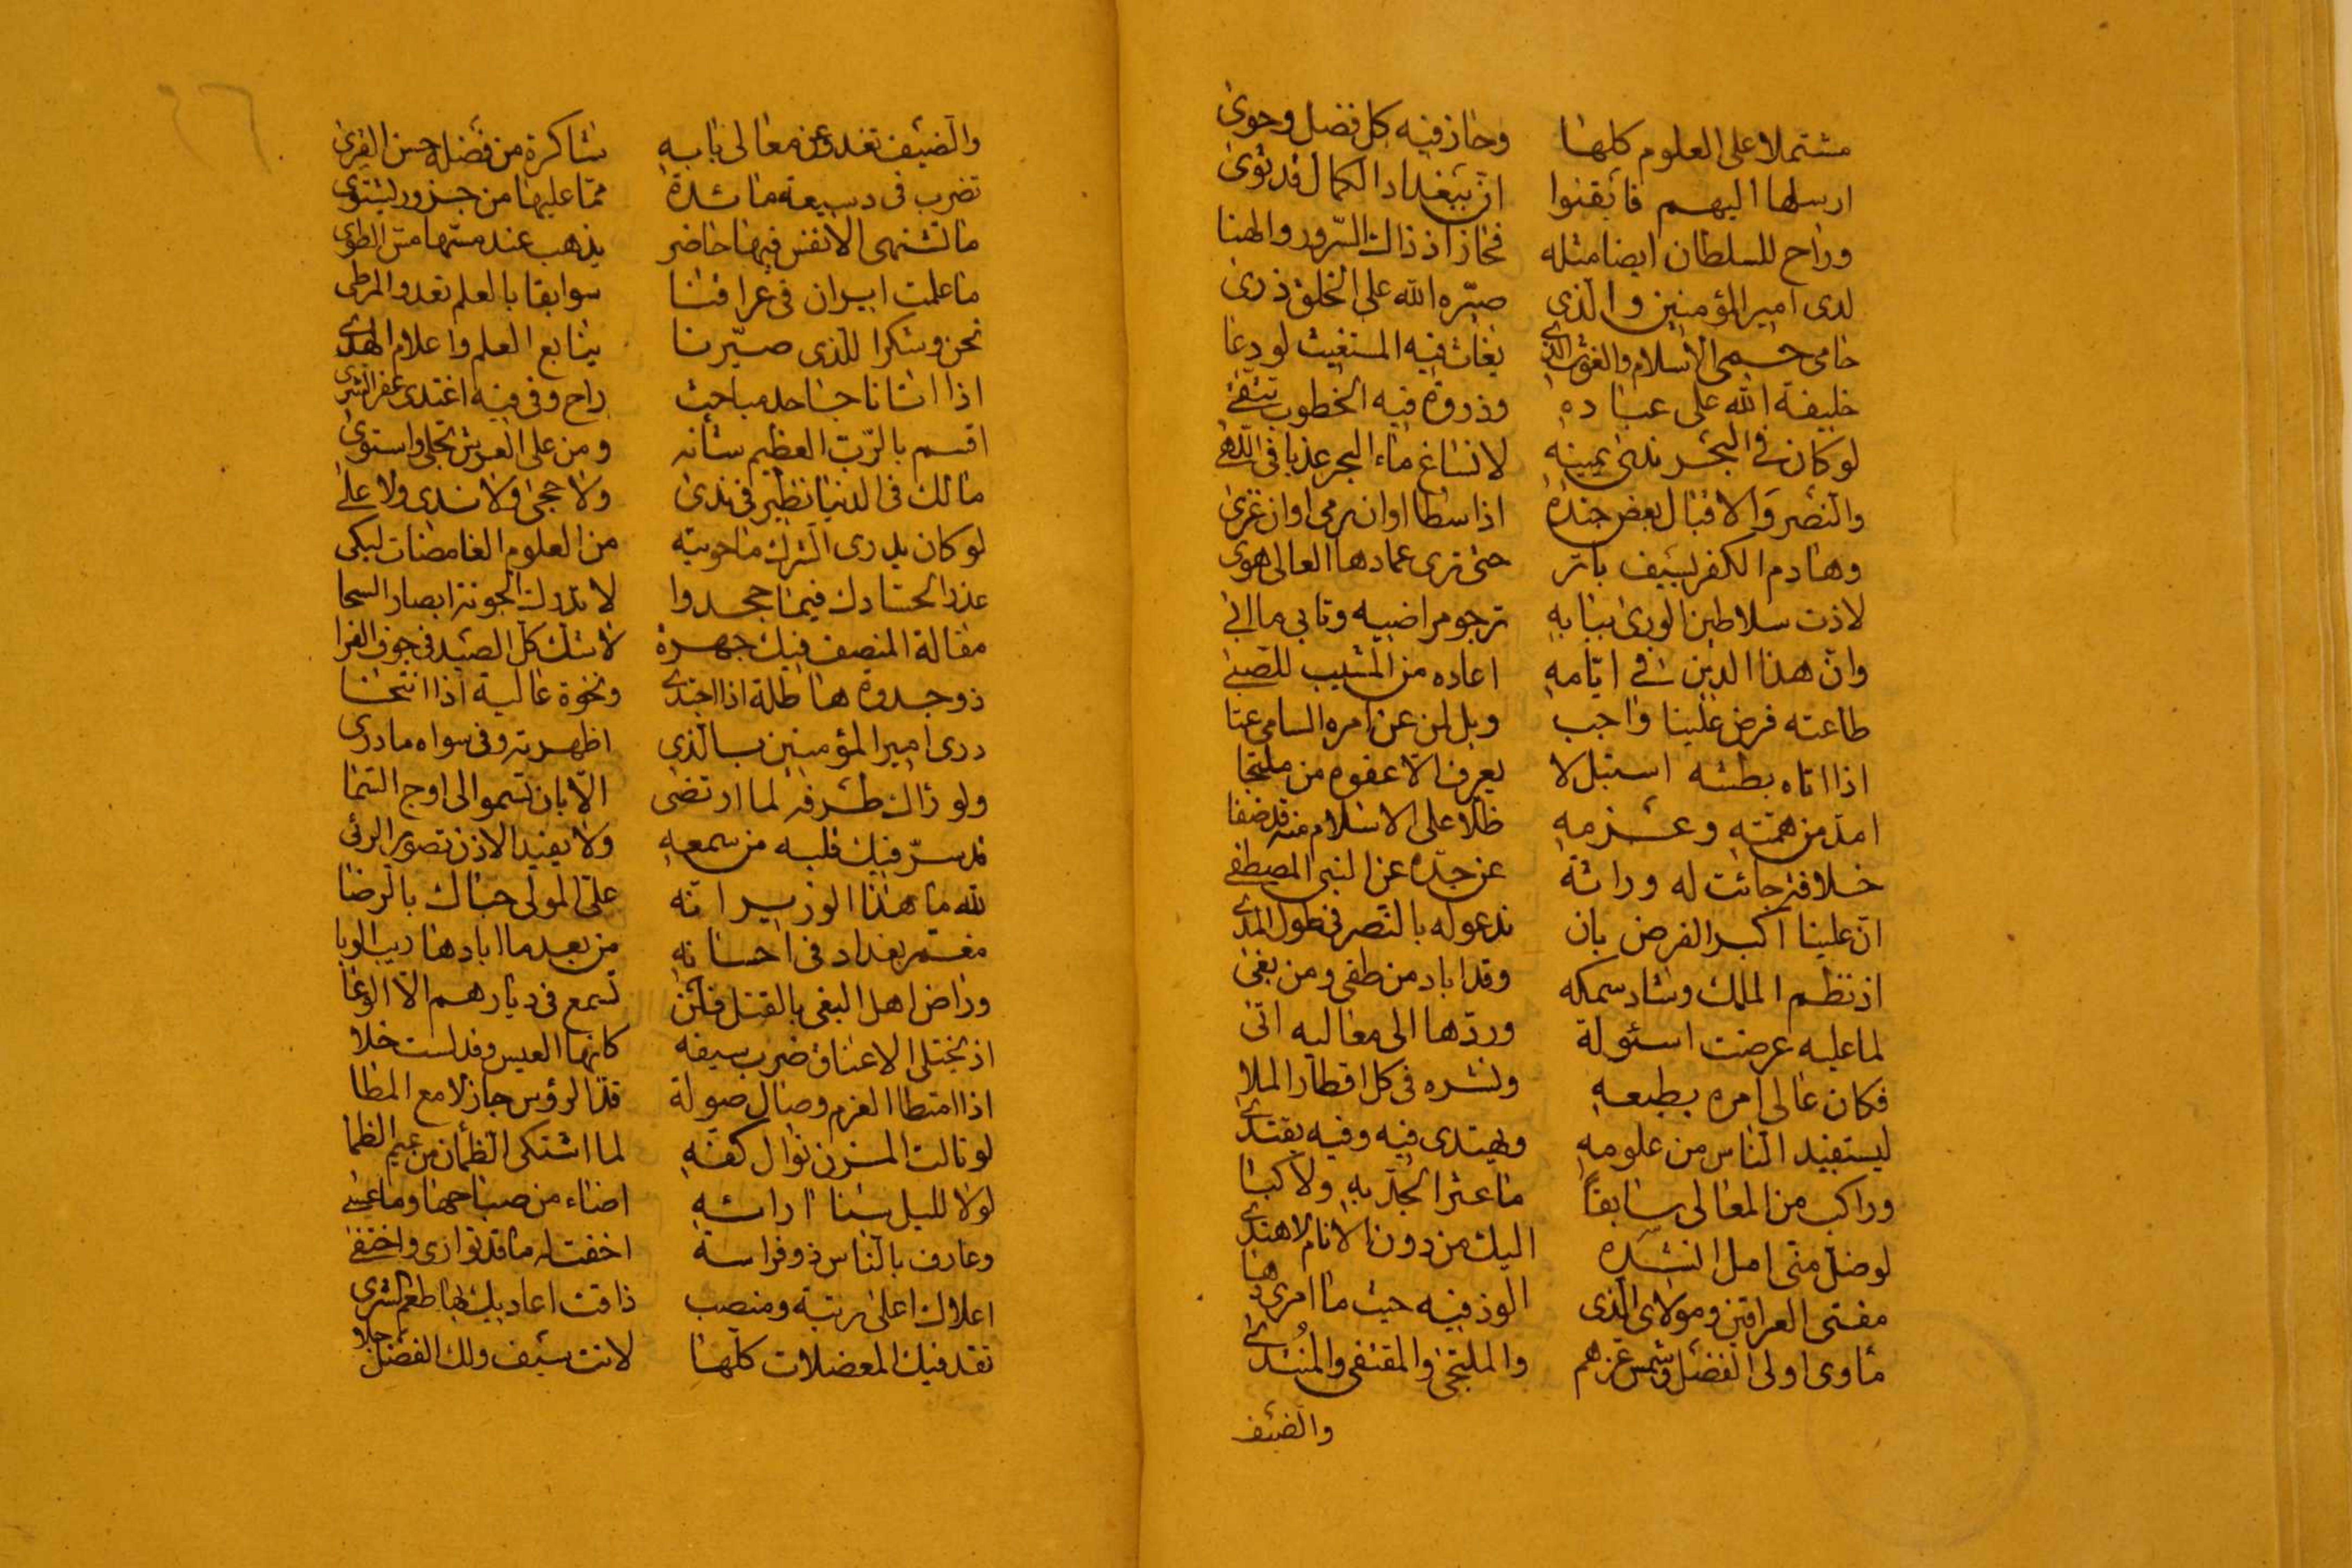 مشتملا على العلوم كلها وحاز فيه كل فضل وحوى
ارسلها اليهم فأيقنوا ان ببغداد الكمال قد ثوى
وراح للسلطان ايضا مثله فحاز اذ ذاك السرور والهنا
لدى امير المؤمنين والذى صيره الله على الخلق ذرى
حامى حمى الاسلام والغوث الذى يغاث فيه المستغيث لو دعا
خليفة الله على عباده وذروة فيه الخطوب تتقى
لو كان فى البحر ندى يمينه لانساغ ماء البحر عذبا فى اللهى
والنصر والاقبال بعض جنده اذا سطا او ان رمى او ان غزى
وهادم الكفر بسيف باتر حتى ترى عمادها العالى هوى
لاذت سلاطين الورى ببابه ترجو مراضيه وتابى ما ابى
وان هذا الدين فى ايامه اعاده من المشيب للصبى
طاعته فرض علينا واجب ويل لمن عن امره السامى عتا
اذا اتاه بطشه استبل لا يعرف الا عفوه من ملتجا
امد من همته وعزمه ظلا على الاسلام منه قد ضفا
خلافة جائت له وراثة عن جده عن النبى المصطفى
ان علينا اكبر الفرض بان ندعو له بالنصر فى طول المدى
اذ نظم الملك وشاد سمكه وقد اباد من طغى ومن بغى
لما عليه عرضت اسئولة وردها الى معاليه اتى
فكان عالى امره بطبعه ونشره فى كل اقطار الملا
ليستفيد الناس من علومه ويهتدى فيه وفيه يقتدى
وراكب من المعالى سابقا ما عثر الجد به ولا كبا
لوضل منى امل انشده اليك من دون الانام لاهتدى
مفتى العراقين ومولاى الذى الوذ فيه حيث ما امرى دها
مأوى اولى الفضل وشمس عزهم والملتجى والمقتفى والمنتدى
والضيف
والضيف تغدو عن معالى بابه شاكرة من فضله حسن القرى
تضرب فى دسيعة مائدة مما عليها من جزور يشتوى
ما تشتهى الانفس فيها حاضر يذهب عند مسها مس الطوى
ما علمت ايران فى عراقنا سوابقا بالعلم تعدو المرطى
نحن وشكرا للذى صيرنا ينابع العلم واعلام الهدى
اذا اتانا جاحد مباحث راح وفى فيه اغتدى عفر الثرى
اقسم بالرب العظيم شأنه ومن على العرش تجلى واستوى
مالك فى الدنيا نظير فى ندى ولا حجى ولا ندى ولا على
لو كان يدرى الشرك ما حويته من العلوم الغامضات لبكى
عذرا لحسادك فيما جحدوا لا تدرك الجونة ابصار السحا
مقالة المنصف فيك جهرة لا شك كل الصيد فى جوف الفرا
ذو جدوة هاطلة اذا اجتدى ونخوة عالية اذا انتخا
درى امير المؤمنين بالذى اظهرته وفى سواه ما درى
ولو رآك طرفه لما ارتضى الا بان تسمو الى اوج السما
قد سر فيك قلبه من سمعه ولا يفيد الاذن تصوير الرئى
لله ما هذا الوزير انه على المولى حباك بالرضا
معمر بغداد فى احسانه من بعد ما ابادها ريب الوبا
وراض اهل البغى بالقتل فلن تسمع فى ديارهم الا الوعا
اذ يختلى الاعناق ضرب سيفه كانها العيس وقد لست خلا
اذا امتطا العزم وصال صولة قد الرؤس جازلا مع المطا
لو نالت المزن نوال كفه لما اشتكى الظمآن من غيم الظما
لولا لليل سنا ارائه اضاء من صباحها وما عسى
وعارف بالناس ذو فراسة اخفت له ما قد توارى واختفى
اعلاك اعلى رتبة ومنصب ذاقت اعاديك بها طعم الشرى
تقد فيك المعضلات كلها لانت سيف ولك الفضل جلا